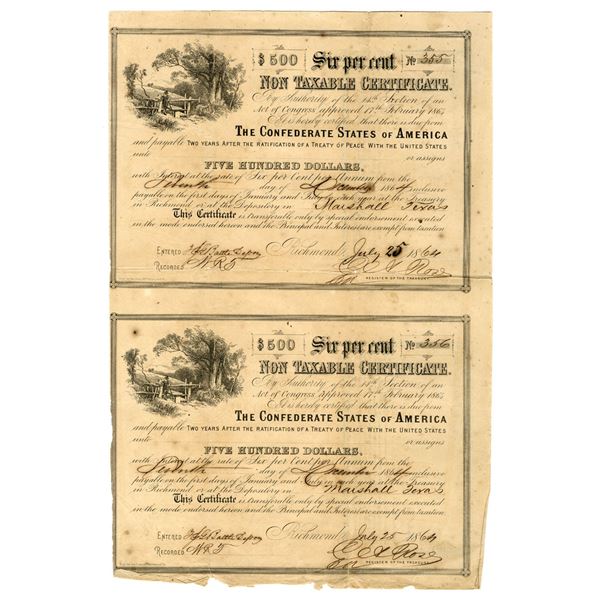 $500 Six per cent No 355
NON TAXABLE CERTIFICATE.
By Authority of the 14th Section of an
Act of Congress approved 17th February 1864
It is hereby certified that there is due from
THE CONFEDERATE STATES OF AMERICA
and payable TWO YEARS AFTER THE RATIFICATION OF A TREATY OF PEACE WITH THE UNITED STATES
unto or assigns
FIVE HUNDRED DOLLARS,
with Interest at the rate of Six per Cent per Annum from the
Seventh day of December 1864 inclusive
payable on the first days of January and July in each year at the Treasury
in Richmond or at the Depository in Marshall Texas
This Certificate is transferable only by special endorsement executed
in the mode endorsed hereon and the Principal and Interest are exempt from taxation
Richmond July 25 1864
ENTERED Battle
RECORDED W.R.T Rose
For REGISTER OF THE TREASURY.
$500 Six per cent No 356
NON TAXABLE CERTIFICATE.
By Authority of the 14th Section of an
Act of Congress approved 17th February 1864
It is hereby certified that there is due from
THE CONFEDERATE STATES OF AMERICA
and payable TWO YEARS AFTER THE RATIFICATION OF A TREATY OF PEACE WITH THE UNITED STATES
unto or assigns
FIVE HUNDRED DOLLARS,
with Interest at the rate of Six per Cent per Annum from the
Seventh day of December 1864 inclusive
payable on the first days of January and July in each year at the Treasury
in Richmond or at the Depository in Marshall Texas
This Certificate is transferable only by special endorsement executed
in the mode endorsed hereon and the Principal and Interest are exempt from taxation.
Richmond July 25 1864
ENTERED Battle
RECORDED W.R.T Rose
For REGISTER OF THE TREASURY.